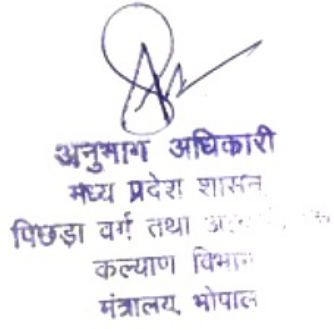 अनुभाग अधिकारी
मध्य प्रदेश शासन
पिछड़ा वर्ग तथा
कल्याण विभाग
मंत्रालय, भोपाल